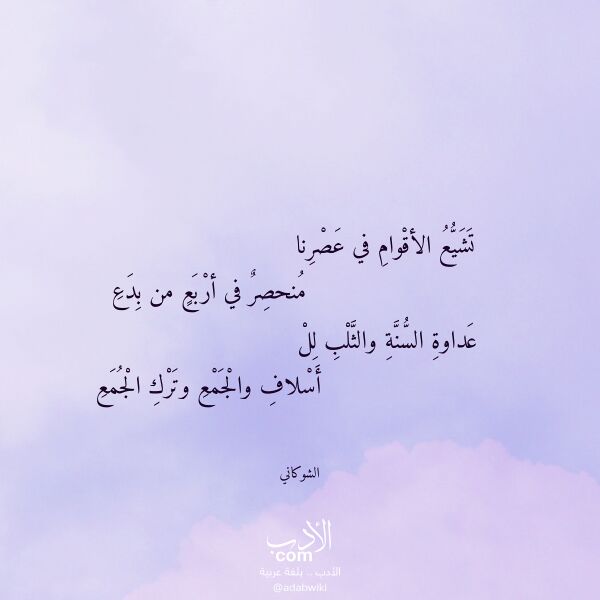 تَشَيُّعُ الأقْوامِ في عَصْرِنا
مُنحصِرٌ في أرْبَعٍ من بِدَعِ
عَداوةِ السُّنَّةِ والثَّلْبِ لِلْ
أَسْلافِ والْجَمْعِ وتَرْكِ الْجُمَعِ
الشوكاني
الأدب
com
الأدب .. بلغة عربية
@adabwiki